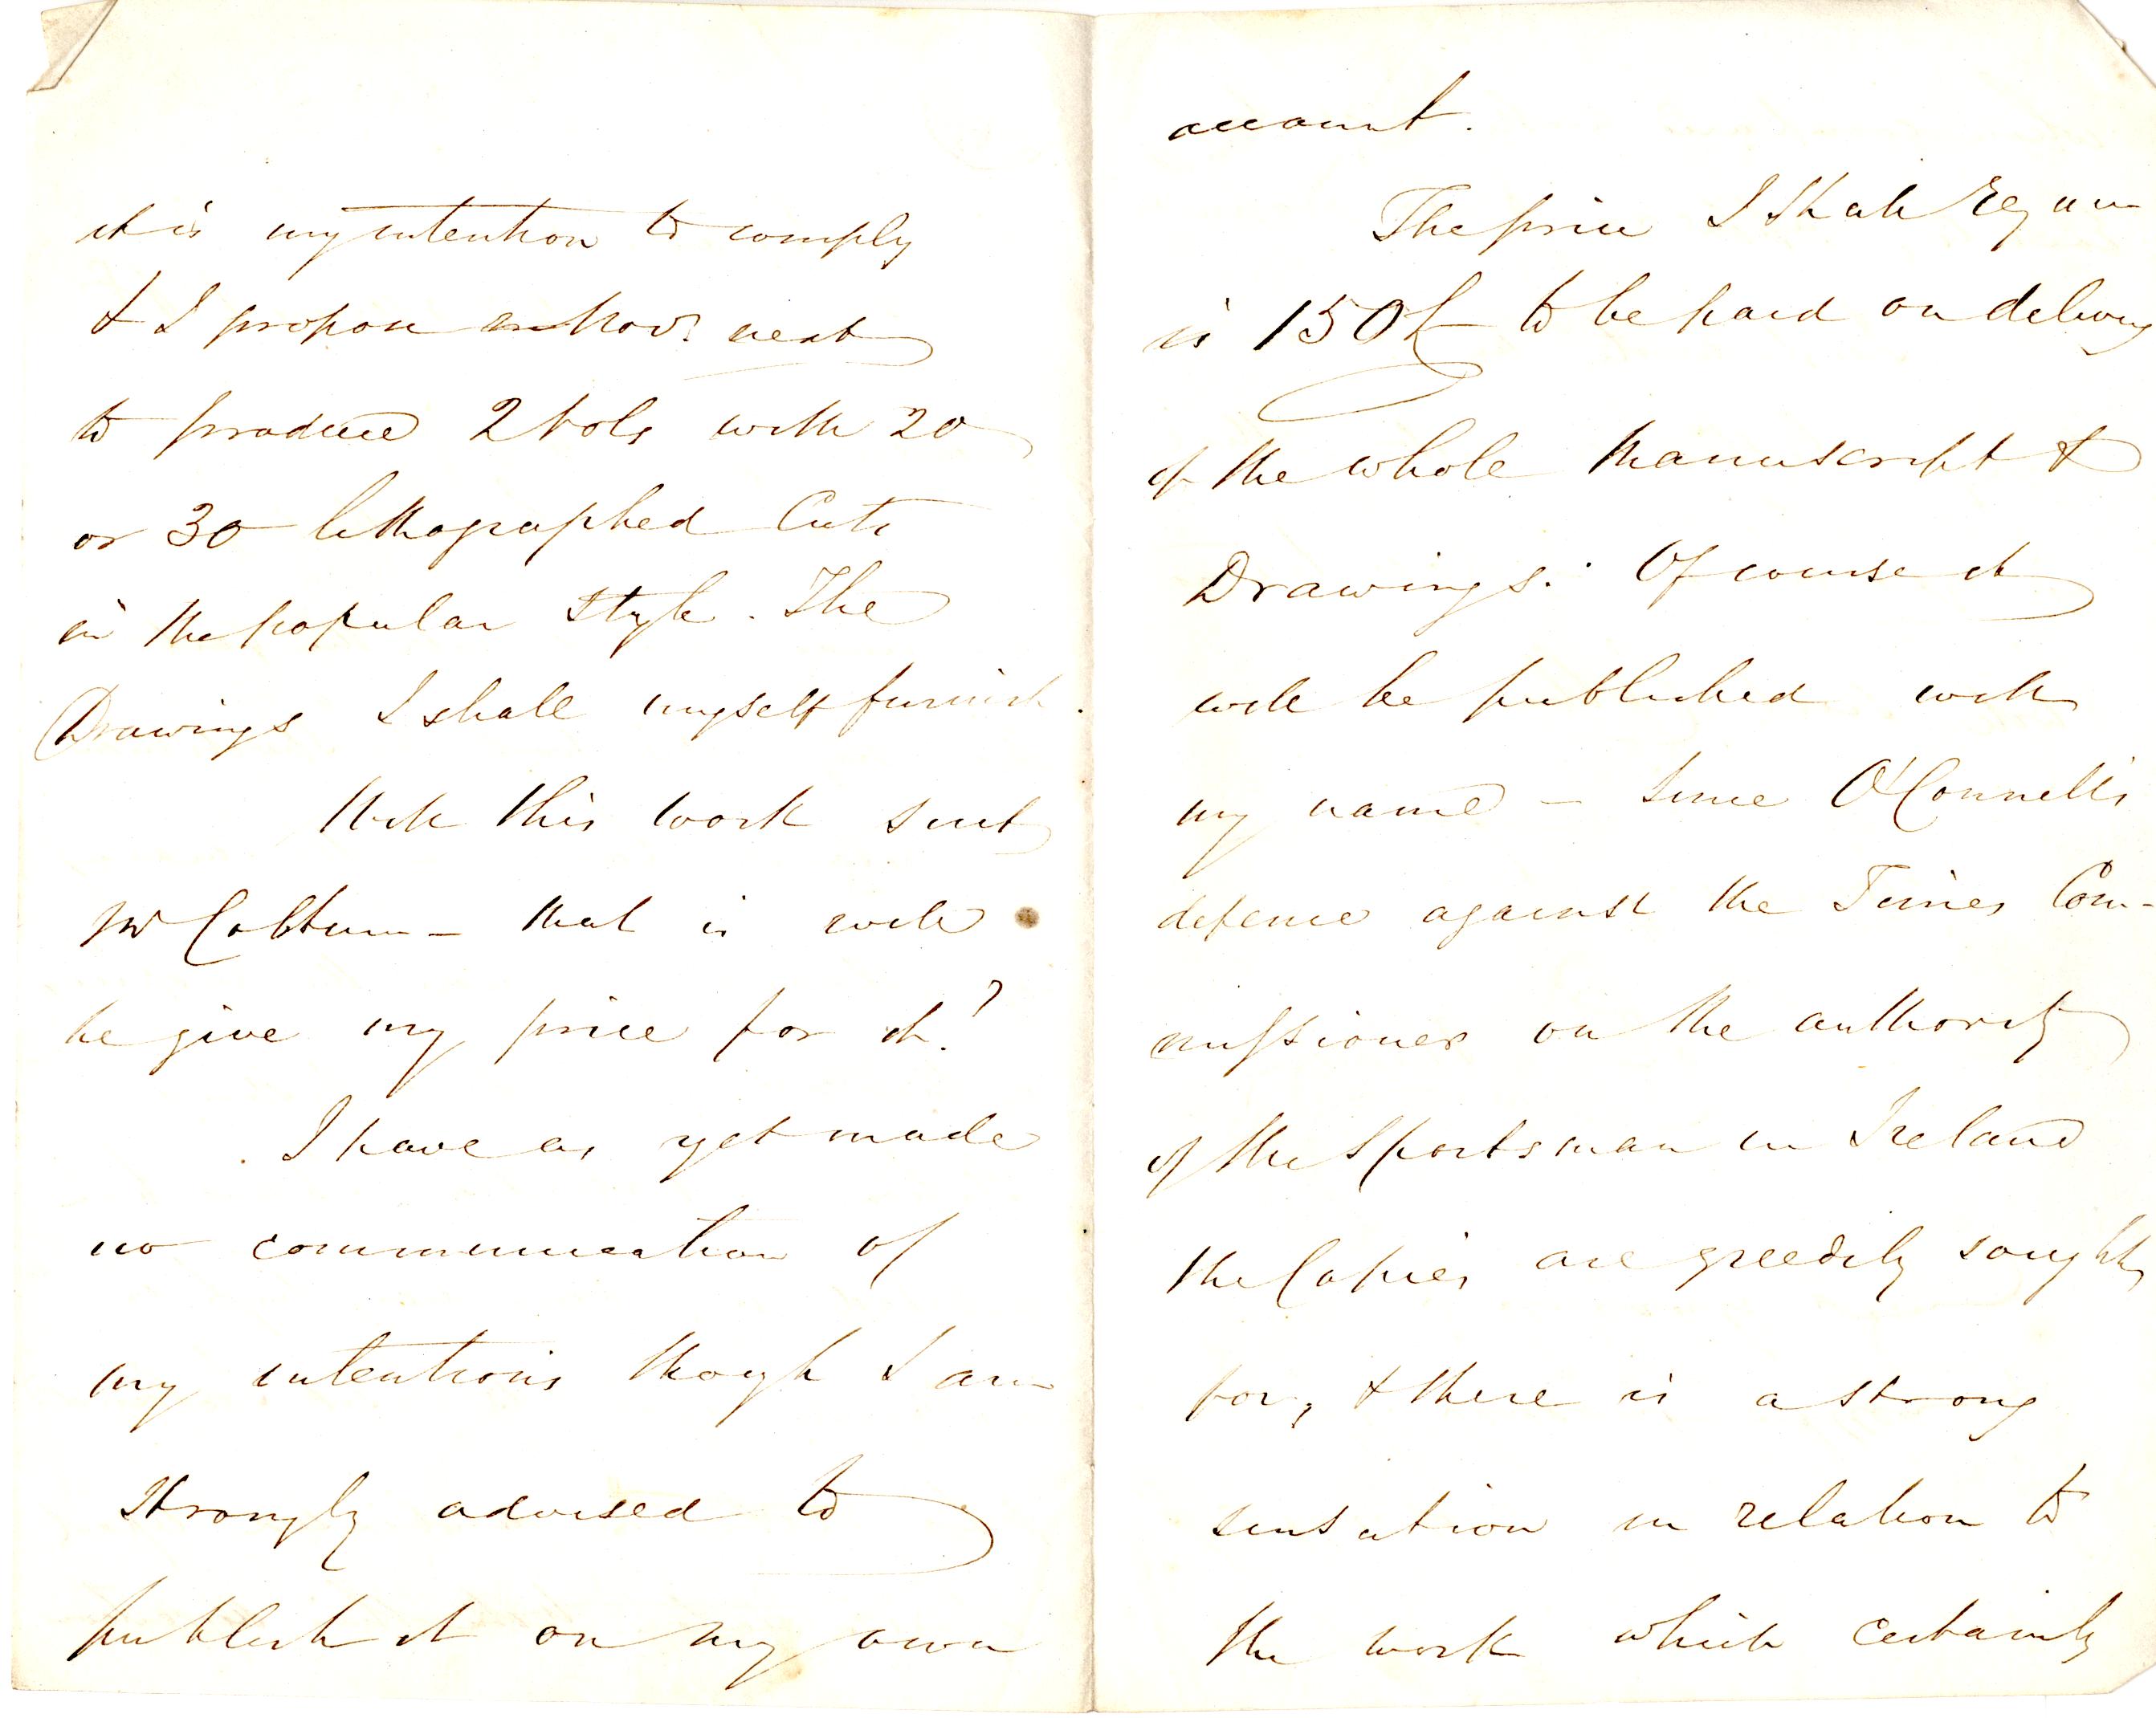 it is my intention to comply
& I propose in Novr. next
to produce 2 Vols with 20
or 30 lithographed Cuts
in the popular style. The
Drawings I shall myself furnish.
Will this work suit
Mr Colburn - that is will
he give my price for it?
I have as yet made
no communication of
my intentions though I am
strongly advised to
publish it on my own
account.
The price I shall require
is 150£ to be paid on delivery
of the whole Manuscript &
Drawings. Of course it
will be published with
my name - since O'Connell's
defence against the Times Com-
missioner on the authority
of the Sportsman in Ireland
the Copies are greedily sought
for, & there is a strong
sensation in relation to
the work which certainly